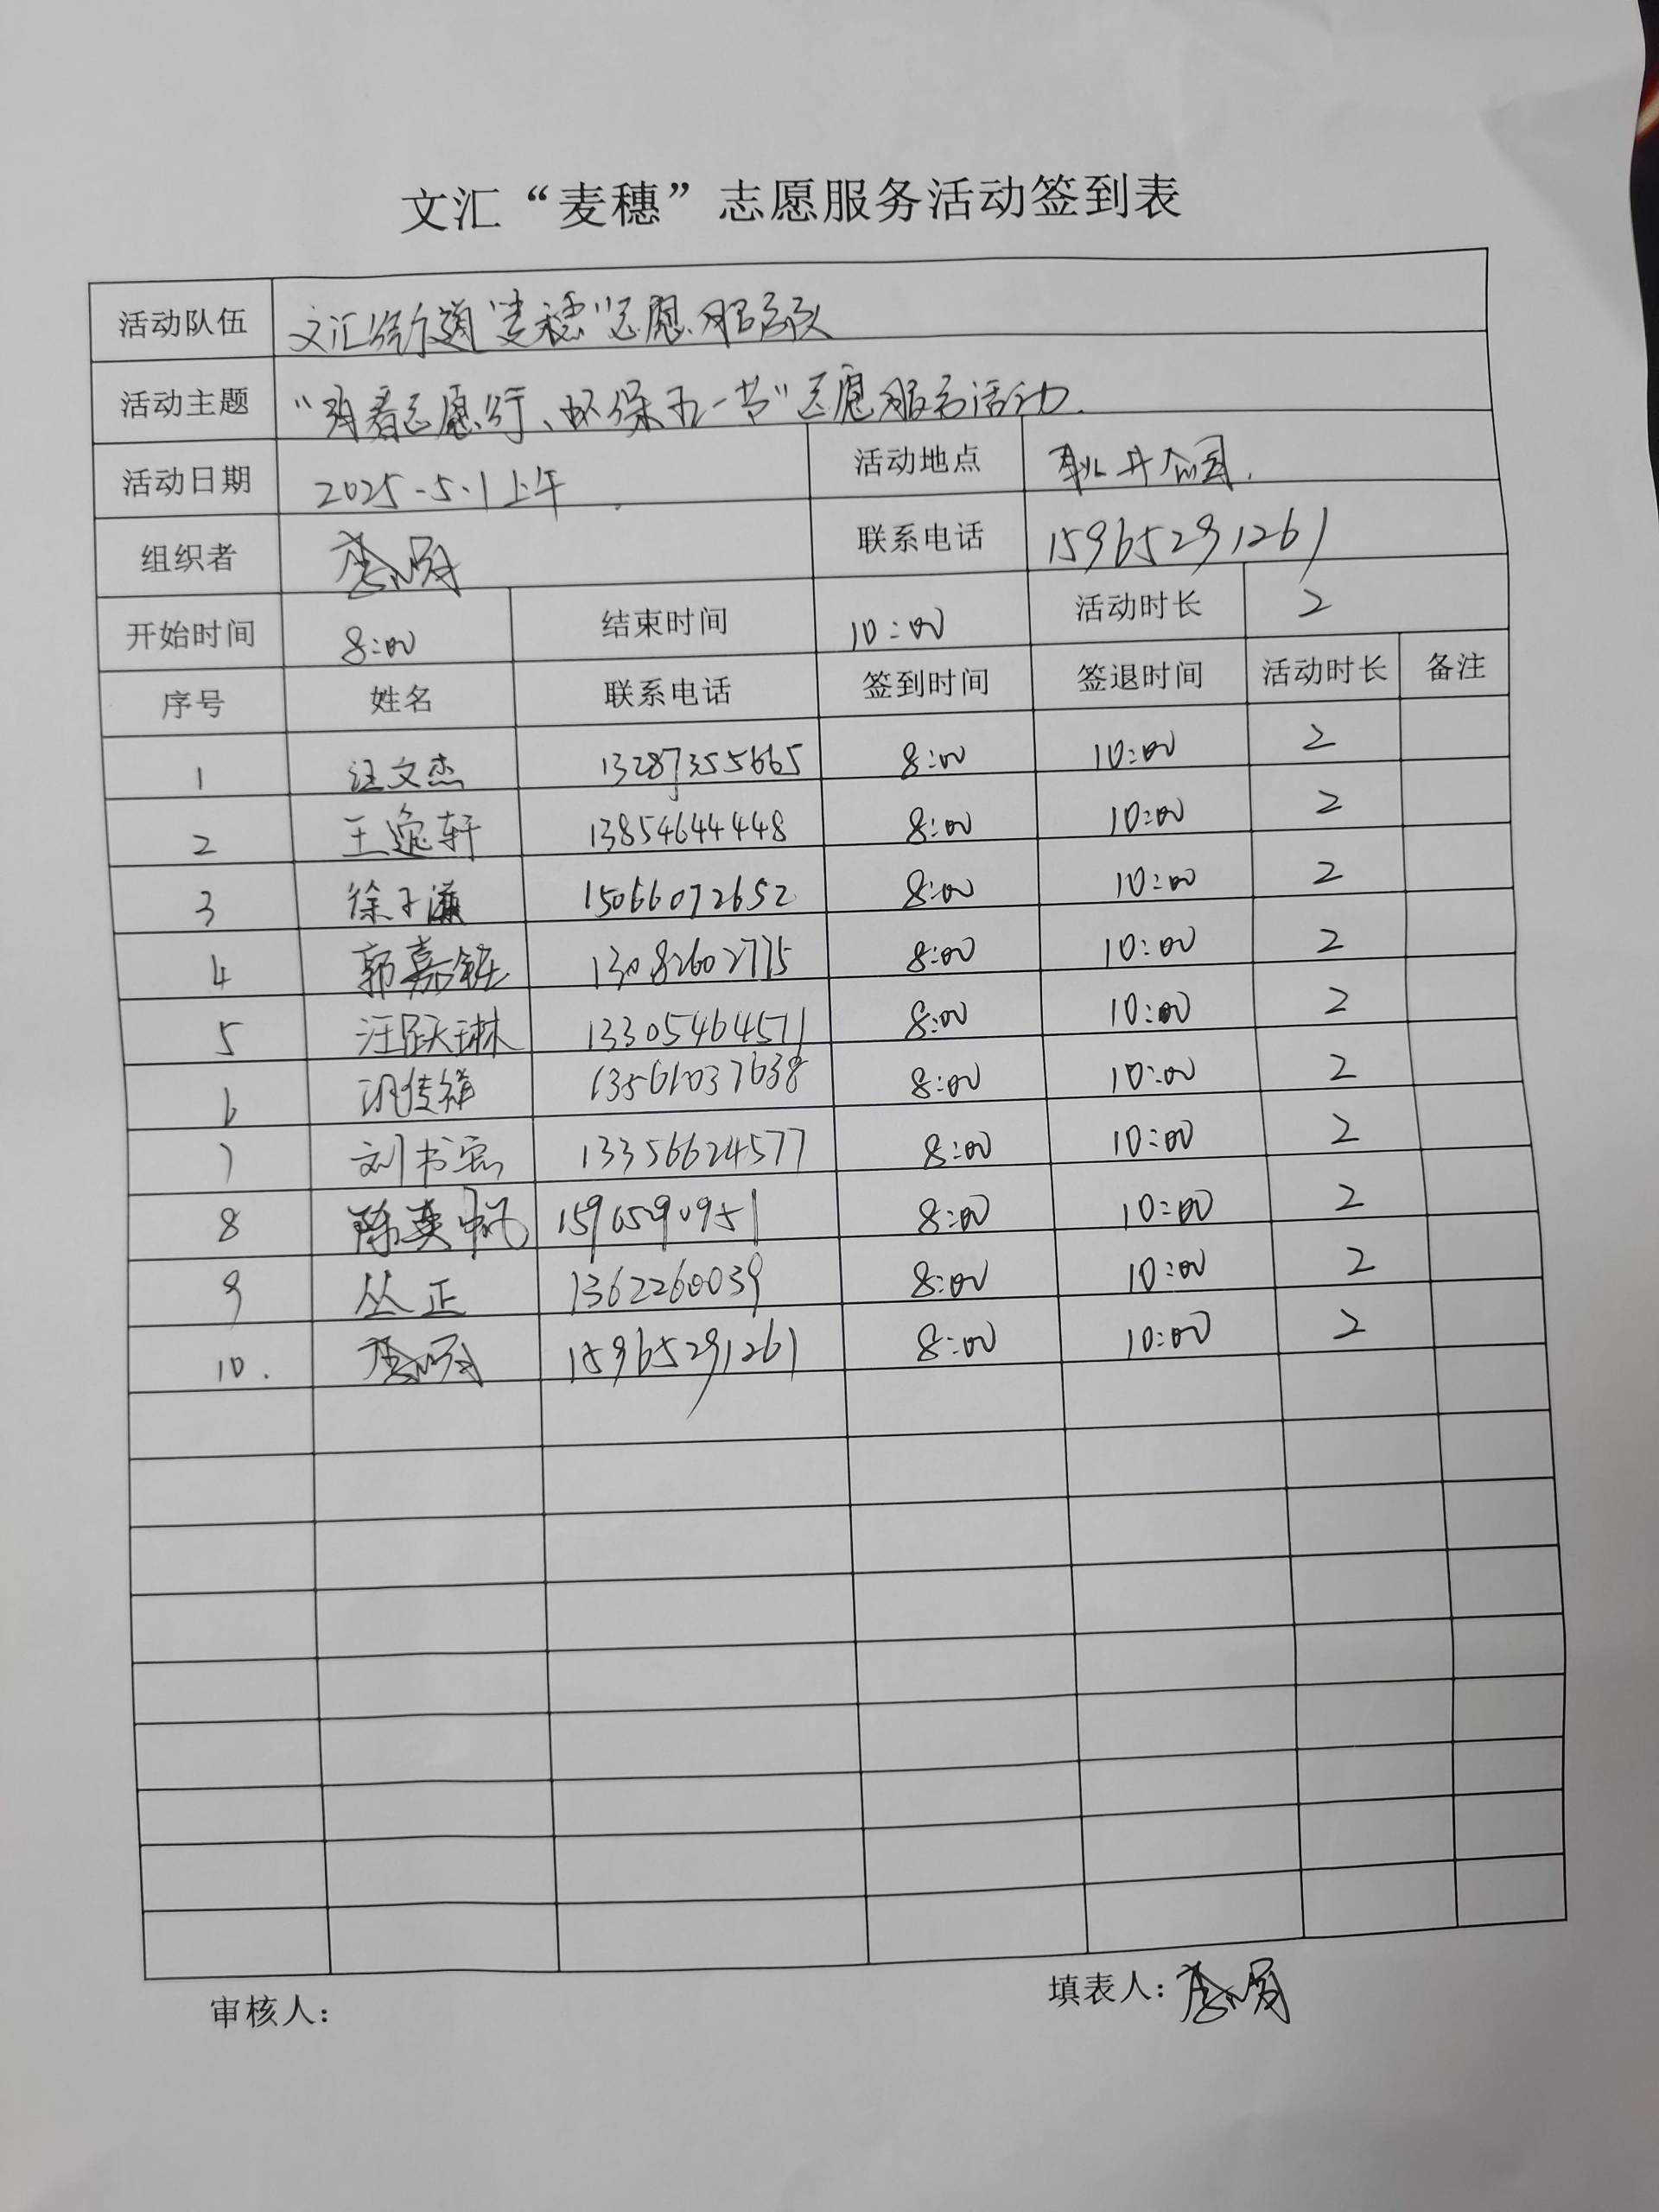 文汇“麦穗”志愿服务活动签到表
活动队伍 文汇街道“麦穗”志愿服务队
活动主题 “青春志愿行、环保五一节”志愿服务活动.
活动日期 2025.5.1上午 活动地点 公园.
组织者 联系电话 15965291261
开始时间 8:00 结束时间 10:00 活动时长 2
序号 姓名 联系电话 签到时间 签退时间 活动时长 备注
1 汪文杰 13287355665 8:00 10:00 2
2 王逸轩 13854644448 8:00 10:00 2
3 徐子 15066072652 8:00 10:00 2
4 郭嘉 13082602775 8:00 10:00 2
5 汪跃琳 13305464571 8:00 10:00 2
6 13561037638 8:00 10:00 2
7 刘书宏 13356624577 8:00 10:00 2
8 陈奕帆 1596590951 8:00 10:00 2
9 丛正 1362260039 8:00 10:00 2
10. 15965291261 8:00 10:00 2
审核人： 填表人：